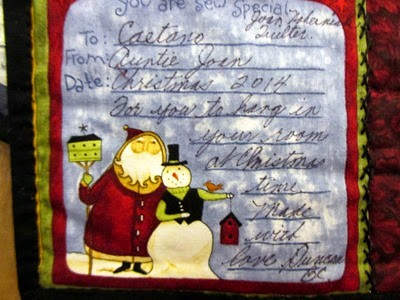 you are sew special
Joan
Quilter
To: Caetano
From: Auntie Joan
Date: Christmas 2014
For you to hang in
your room
at Christmas
time
Made
with
love Duncan
BC